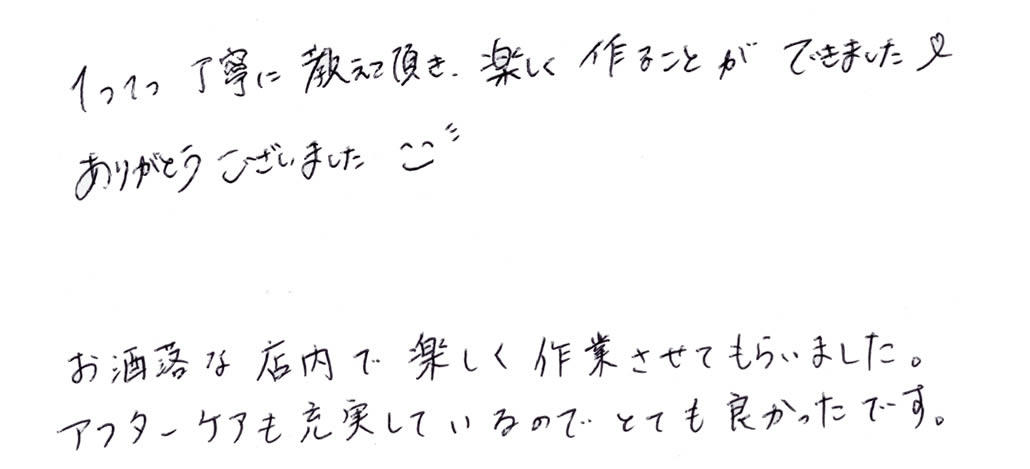 1つ1つ 丁寧に 教えて頂き、楽しく 作ることが できました♡
ありがとう ございました
お洒落な店内で 楽しく作業させてもらいました。
アフターケアも充実しているのでとても良かったです。